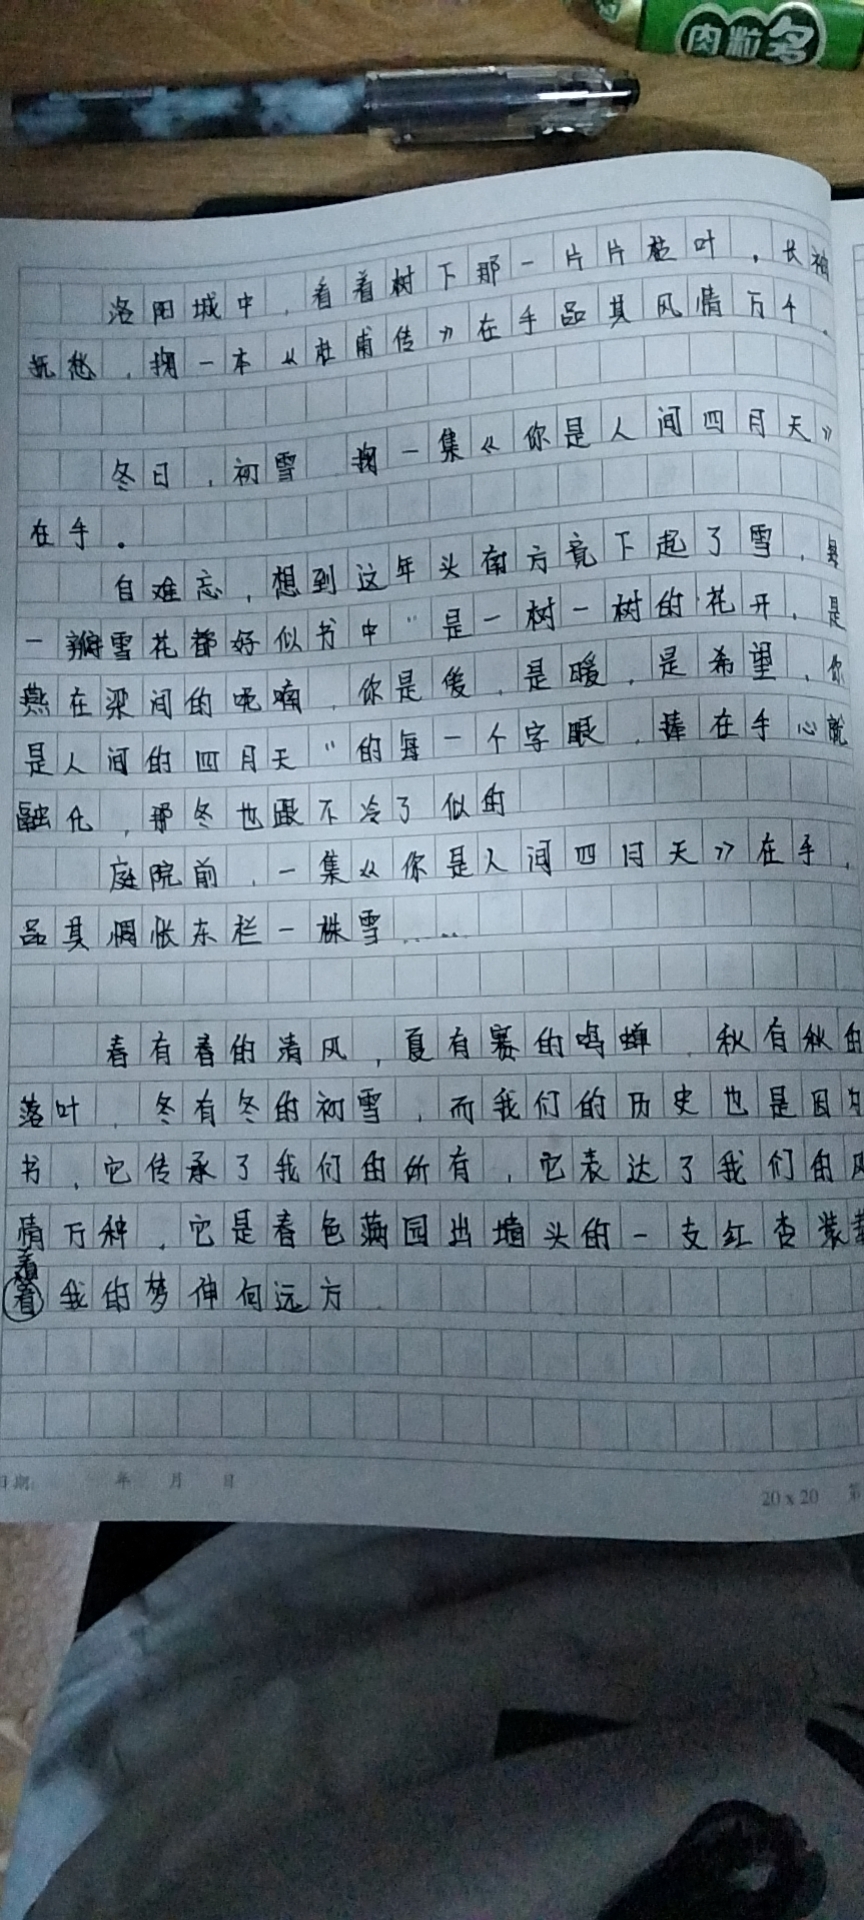 肉粒多
洛阳城中，看着树下那一片片枯叶，长袖
抚愁，掬一本《杜甫传》在手品其风情万千．
冬日，初雪 掬一集《你是人间四月天》
在手。
自难忘，想到这年头南方竟下起了雪，每
一瓣雪花都好似书中"是一树一树的花开，是
燕在梁间的呢喃，你是爱，是暖，是希望，你
是人间的四月天"的每一个字眼，捧在手心就
融化，那冬也跟不冷了似的
庭院前，一集《你是人间四月天》在手，
品其惆怅东栏一株雪……
春有春的清风，夏有赛的鸣蝉，秋有秋的
落叶，冬有冬的初雪，而我们的历史也是因为
书，它传承了我们的所有，它表达了我们的风
情万种，它是春色满园出墙头的一支红杏装载
着
着我的梦伸向远方
日期 年 月 日
20 x 20 第